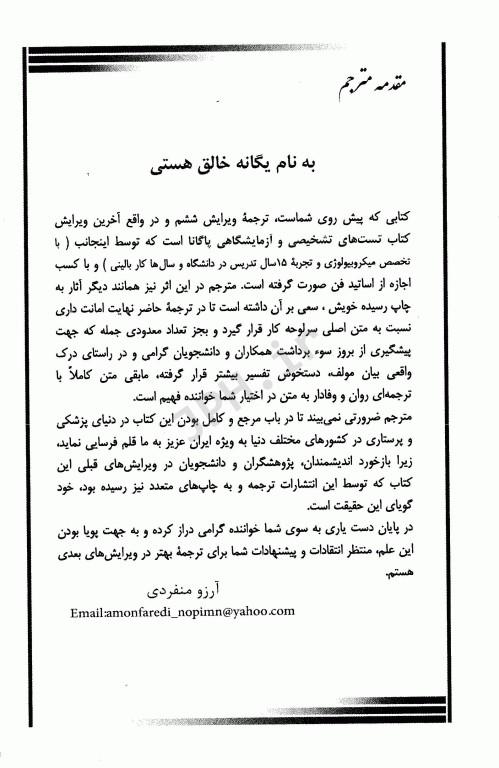 مقدمه مترجم
به نام یگانه خالق هستی
کتابی که پیش روی شماست، ترجمهٔ ویرایش ششم و در واقع آخرین ویرایش
کتاب تست‌های تشخیصی و آزمایشگاهی پاگانا است که توسط اینجانب ( با
تخصص میکروبیولوژی و تجربهٔ ۱۵سال تدریس در دانشگاه و سال‌ها کار بالینی ) و با کسب
اجازه از اساتید فن صورت گرفته است. مترجم در این اثر نیز همانند دیگر آثار به
چاپ رسیده خویش ، سعی بر آن داشته است تا در ترجمهٔ حاضر نهایت امانت داری
نسبت به متن اصلی سرلوحه کار قرار گیرد و بجز تعداد معدودی جمله که جهت
پیشگیری از بروز سوء برداشت همکاران و دانشجویان گرامی و در راستای درک
واقعی بیان مولف، دستخوش تفسیر بیشتر قرار گرفته، مابقی متن کاملاً با
ترجمه‌ای روان و وفادار به متن در اختیار شما خواننده فهیم است.
مترجم ضرورتی نمی‌بیند تا در باب مرجع و کامل بودن این کتاب در دنیای پزشکی
و پرستاری در کشورهای مختلف دنیا به ویژه ایران عزیز به ما قلم فرسایی نماید،
زیرا بازخورد اندیشمندان، پژوهشگران و دانشجویان در ویرایش‌های قبلی این
کتاب که توسط این انتشارات ترجمه و به چاپ‌های متعدد نیز رسیده بود، خود
گویای این حقیقت است.
در پایان دست یاری به سوی شما خواننده گرامی دراز کرده و به جهت پویا بودن
این علم، منتظر انتقادات و پیشنهادات شما برای ترجمهٔ بهتر در ویرایش‌های بعدی
هستم.
آرزو منفردی
Email:amonfaredi_nopimn@yahoo.com
JPH.ir